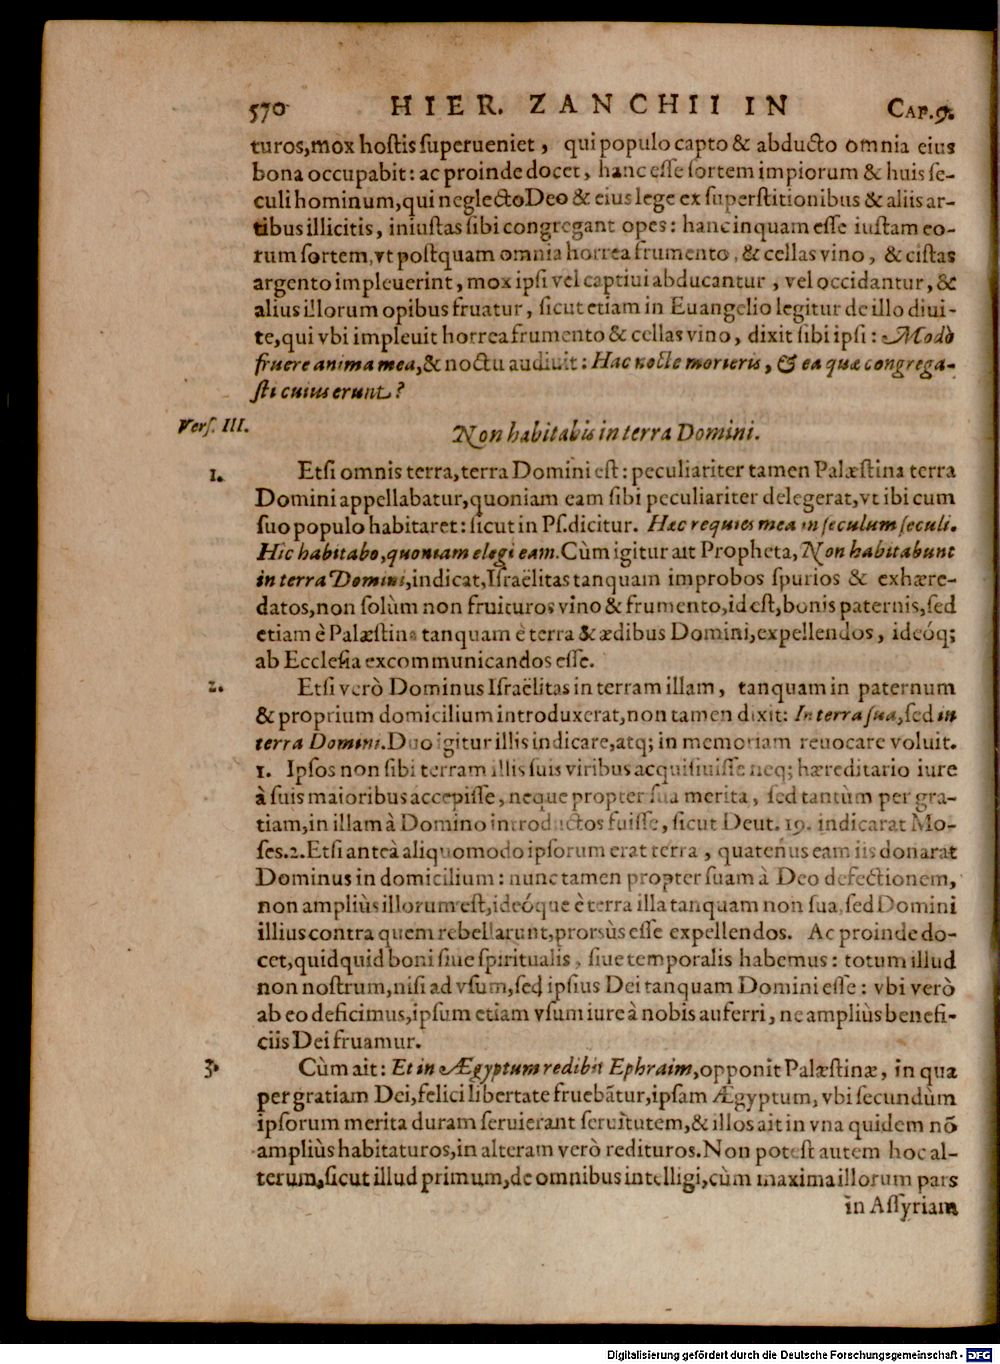 570 HIER. ZANCHII IN CAP. 9.
turos,mox hostis superueniet, qui populo capto & abducto omnia eius
bona occupabit: ac proinde docet, hanc esse sortem impiorum & huis se-
culi hominum, qui neglecto Deo & eius lege ex superstitionibus & aliis ar-
tibus illicitis, iniustas sibi congregant opes: hanc inquam esse iustam eo-
rum sortem, vt postquam omnia horrea frumento, & cellas vino, & cistas
argento impleuerint, mox ipsi vel captiui abducantur, vel occidantur, &
alius illorum opibus fruatur, sicut etiam in Euangelio legitur de illo diui-
te, qui vbi impleuit horrea frumento & cellas vino, dixit sibi ipsi: Modò
fruere anima mea, & noctu audiuit: Hac nocte morieris, & ea quæ congrega-
sti cuius erunt?
Vers. III. Non habitabis in terra Domini.
1. Etsi omnis terra, terra Domini est: peculiariter tamen Palæstina terra
Domini appellabatur, quoniam eam sibi peculiariter delegerat, vt ibi cum
suo populo habitaret: sicut in Ps. dicitur. Hæc requies mea in seculum seculi.
Hic habitabo, quoniam elegi eam. Cùm igitur ait Propheta, Non habitabunt
in terra Domini, indicat, Israëlitas tanquam improbos spurios & exhære-
datos, non solùm non fruituros vino & frumento, id est, bonis paternis, sed
etiam è Palæstina tanquam è terra & ædibus Domini, expellendos, ideóq;
ab Ecclesia excommunicandos esse.
2. Etsi verò Dominus Israëlitas in terram illam, tanquam in paternum
& proprium domicilium introduxerat, non tamen dixit: In terra sua, sed in
terra Domini. Duo igitur illis indicare, atq; in memoriam reuocare voluit.
1. Ipsos non sibi terram illis suis viribus acquisiuisse neq; hæreditario iure
à suis maioribus accepisse, neque propter sua merita, sed tantùm per gra-
tiam, in illam à Domino introductos fuisse, sicut Deut. 19. indicarat Mo-
ses. 2. Etsi anteà aliquomodo ipsorum erat terra, quatenus eam iis donarat
Dominus in domicilium: nunc tamen propter suam à Deo defectionem,
non ampliùs illorum est, ideóque è terra illa tanquam non sua, sed Domini
illius contra quem rebellarunt, prorsùs esse expellendos. Ac proinde do-
cet, quidquid boni siue spiritualis, siue temporalis habemus: totum illud
non nostrum, nisi ad vsum, sed ipsius Dei tanquam Domini esse: vbi verò
ab eo deficimus, ipsum etiam vsum iure à nobis auferri, ne ampliùs benefi-
ciis Dei fruamur.
3. Cùm ait: Et in Ægyptum redibit Ephraim, opponit Palæstinæ, in qua
per gratiam Dei, felici libertate fruebãtur, ipsam Ægyptum, vbi secundùm
ipsorum merita duram seruierant seruitutem, & illos ait in vna quidem nõ
ampliùs habitaturos, in alteram verò redituros. Non potest autem hoc al-
terum, sicut illud primum, de omnibus intelligi, cùm maxima illorum pars
in Assyriam
Digitalisierung gefördert durch die Deutsche Forschungsgemeinschaft - DFG